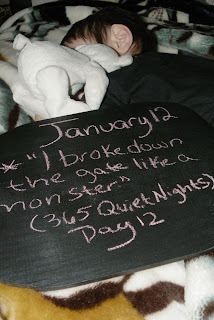 January 12
* "I broke down
the gate like a
monster"
(365 Quiet Nights)
Day 12